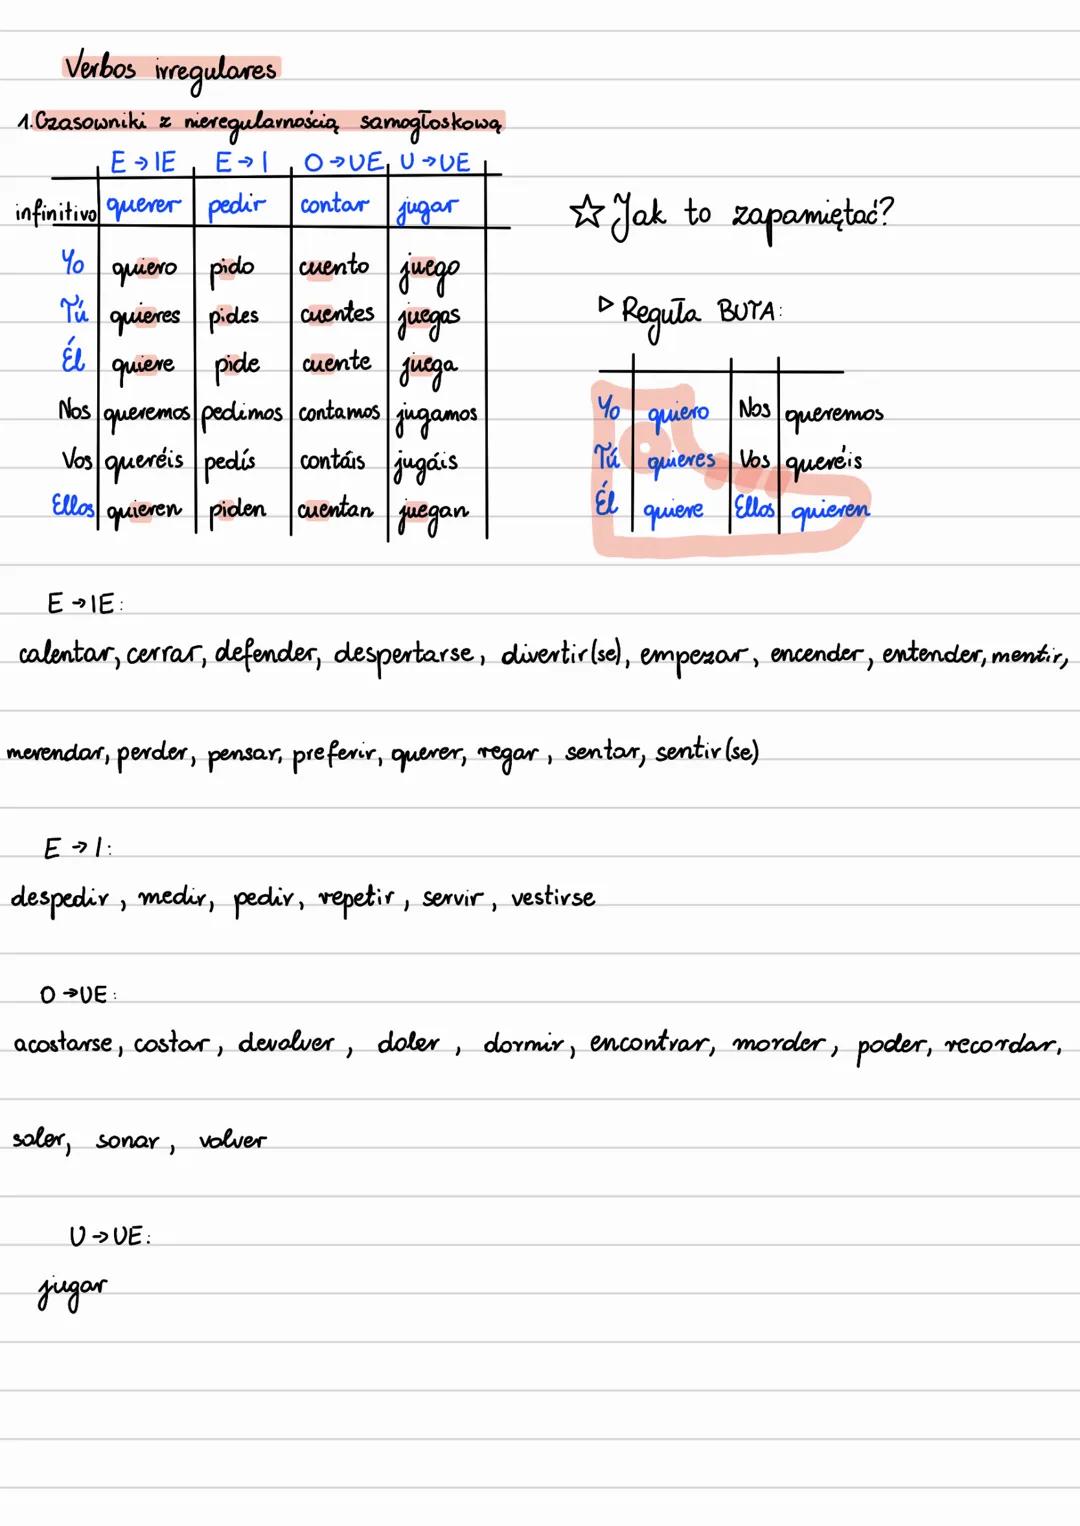 Verbos irregulares
1. Czasowniki z nieregularnością samogłoskową
E → IE E → I O → UE U → UE
infinitivo querer pedir contar jugar
Yo quiero pido cuento juego
Tú quieres pides cuentes juegas
Él quiere pide cuente juega
Nos queremos pedimos contamos jugamos
Vos queréis pedís contáis jugáis
Ellos quieren piden cuentan juegan
☆ Jak to zapamiętać?
▷ Reguła BUTA:
Yo quiero Nos queremos
Tú quieres Vos queréis
Él quiere Ellos quieren
E → IE:
calentar, cerrar, defender, despertarse, divertir(se), empezar, encender, entender, mentir,
merendar, perder, pensar, preferir, querer, regar, sentar, sentir(se)
E → I:
despedir, medir, pedir, repetir, servir, vestirse
O → UE:
acostarse, costar, devolver, doler, dormir, encontrar, morder, poder, recordar,
soler, sonar, volver
U → UE:
jugar